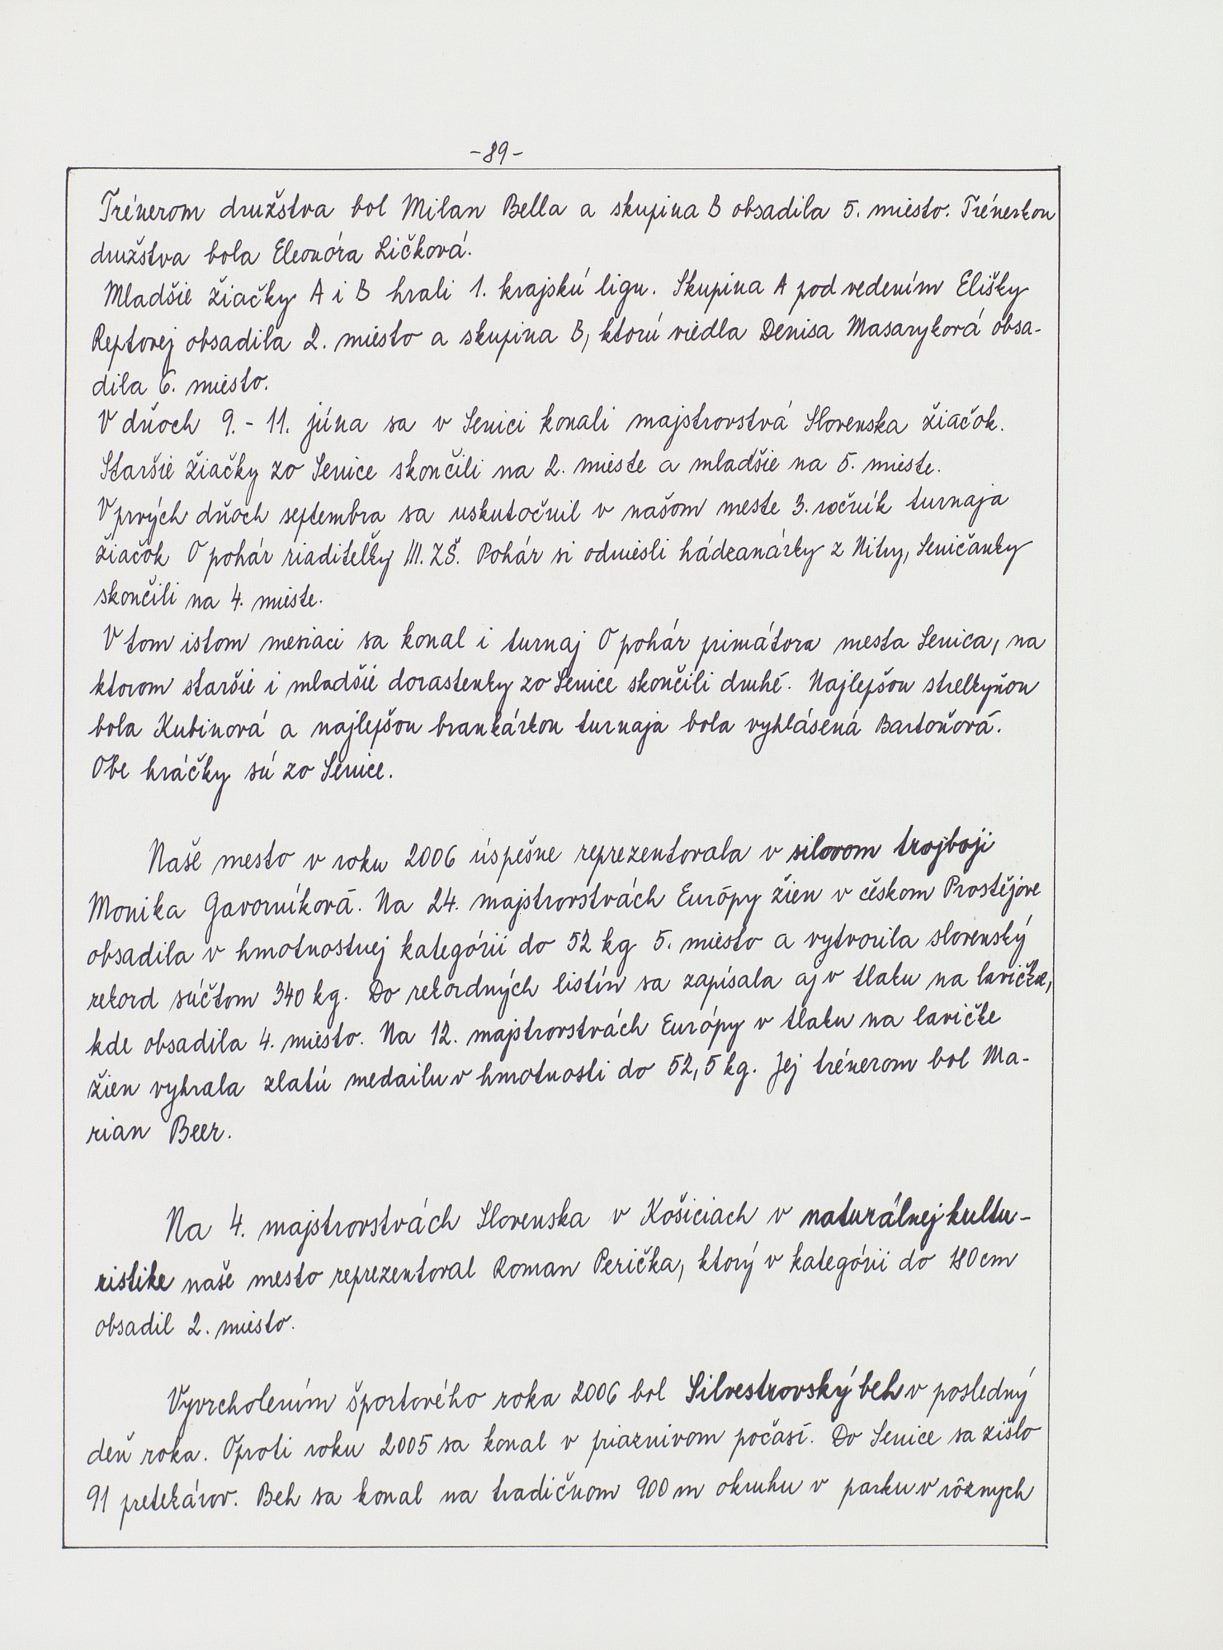 -89-
Trénerom družstva bol Milan Bella a skupina B obsadila 5. miesto. Trénerkou
družstva bola Eleonóra Ličková.
Mladšie žiačky A i B hrali 1. krajskú ligu. Skupina A pod vedením Elišky
Reptovej obsadila 2. miesto a skupina B, ktorú viedla Denisa Masaryková obsa-
dila 6. miesto.
V dňoch 9. - 11. júna sa v Senici konali majstrovstvá Slovenska žiačok.
Staršie žiačky zo Senice skončili na 2. mieste a mladšie na 5. mieste.
V prvých dňoch septembra sa uskutočnil v našom meste 3. ročník turnaja
žiačok O pohár riaditeľky III. ZŠ. Pohár si odniesli hádzanárky z Nitry, Seničanky
skončili na 4. mieste.
V tom istom mesiaci sa konal i turnaj O pohár primátora mesta Senica, na
ktorom staršie i mladšie dorastenky zo Senice skončili druhé. Najlepšou strelkyňou
bola Kubinová a najlepšou brankárkou turnaja bola vyhlásená Bartoňová.
Obe hráčky sú zo Senice.
Naše mesto v roku 2006 úspešne reprezentovala v silovom trojboji
Monika Gavorníková. Na 24. majstrovstvách Európy žien v českom Prostějove
obsadila v hmotnostnej kategórii do 52 kg 5. miesto a vytvorila slovenský
rekord súčtom 340 kg. Do rekordných listín sa zapísala aj v tlaku na lavičke,
kde obsadila 4. miesto. Na 12. majstrovstvách Európy v tlaku na lavičke
žien vyhrala zlatú medailu v hmotnosti do 52,5 kg. Jej trénerom bol Ma-
rian Beer.
Na 4. majstrovstvách Slovenska v Košiciach v naturálnej kultu-
ristike naše mesto reprezentoval Roman Perička, ktorý v kategórii do 180 cm
obsadil 2. miesto.
Vyvrcholením športového roka 2006 bol Silvestrovský beh v posledný
deň roka. Oproti roku 2005 sa konal v priaznivom počasí. Do Senice sa zišlo
91 pretekárov. Beh sa konal na tradičnom 900 m okruhu v parku v rôznych